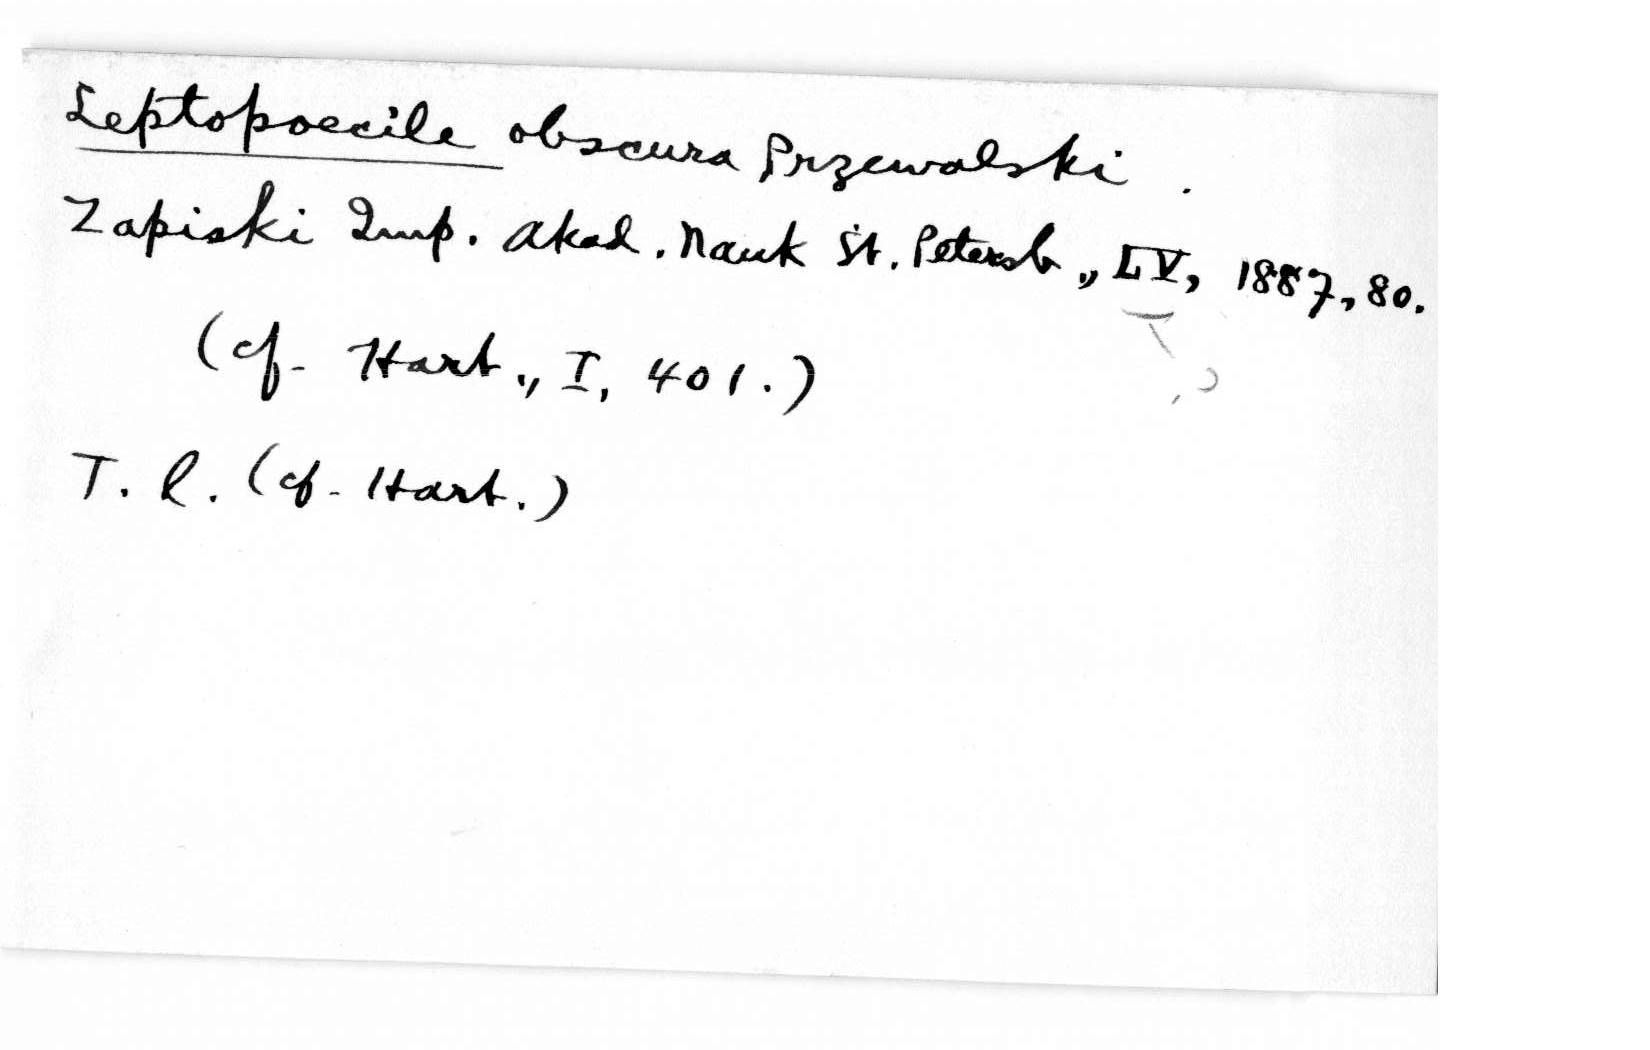 Leptopoecile obscura Przewalski.
Zapiski Imp. Akad. Nauk St. Petersb., LV, 1887, 80.
(cf. Hart., I, 401.)
T. l. (cf. Hart.)